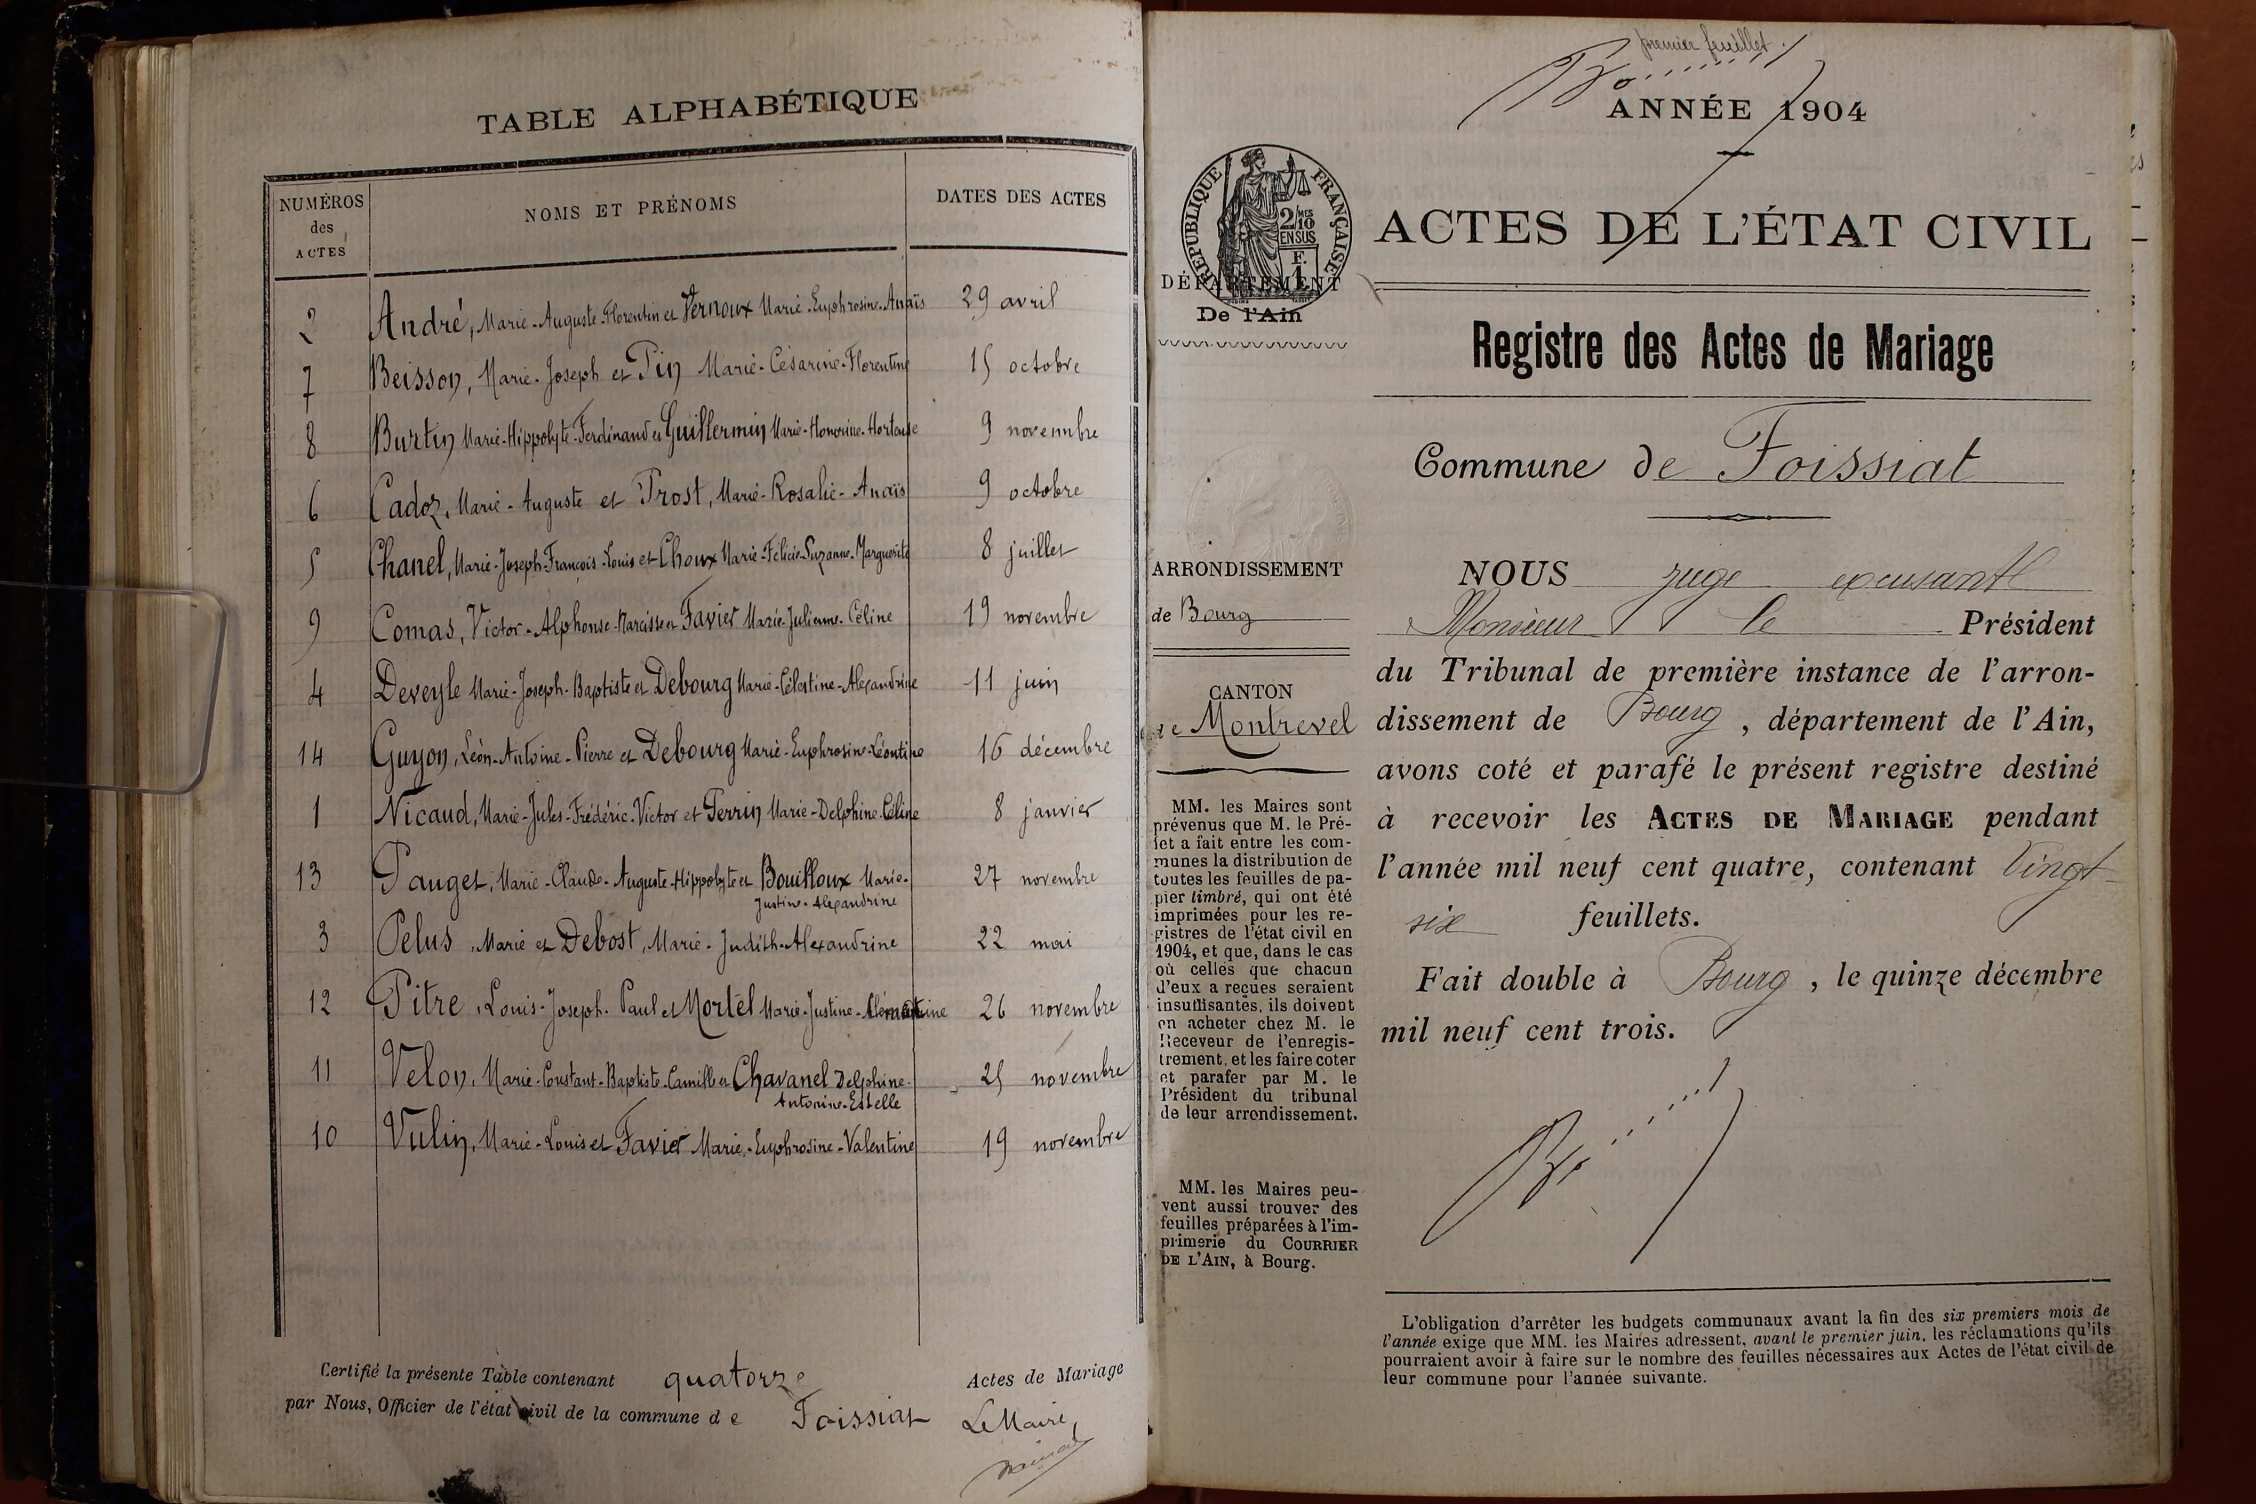 TABLE ALPHABÉTIQUE
NUMÉROS
des
ACTES
NOMS ET PRÉNOMS
DATES DES ACTES
2 André, Marie-Auguste-Florentin et Vernoux Marie-Euphrosine-Anaïs 29 avril
7 Beisson, Marie-Joseph et Pin Marie-Césarine-Florentine 15 octobre
8 Burtin Marie-Hippolyte-Ferdinand et Guillermin Marie-Honorine-Hortense 9 novembre
6 Cadoz, Marie-Auguste et Prost, Marie-Rosalie-Anaïs 9 octobre
5 Chanel, Marie-Joseph-François-Louis et Choux Marie-Félicie-Suzanne-Marguerite 8 juillet
9 Comas, Victor-Alphonse-Narcisse et Favier Marie-Julienne-Céline 19 novembre
4 Deveyle Marie-Joseph-Baptiste et Debourg Marie-Célestine-Alexandrine 11 juin
14 Guyon, Léon-Antoine-Pierre et Debourg Marie-Euphrosine-Léontine 16 décembre
1 Nicaud, Marie-Jules-Frédéric-Victor et Perrin Marie-Delphine-Céline 8 janvier
13 Pauget, Marie-Claude-Auguste-Hippolyte et Bouilloux Marie- 27 novembre
Justine-Alexandrine
3 Pelus, Marie et Debost, Marie-Judith-Alexandrine 22 mai
12 Pitre, Louis-Joseph-Paul et Mortel Marie-Justine-Clémentine 26 novembre
11 Velon, Marie-Constant-Baptiste-Camille et Chavanel Delphine- 25 novembre
Antonine-Estelle
10 Vulin, Marie-Louis et Favier Marie-Euphrosine-Valentine 19 novembre
Certifié la présente Table contenant quatorze Actes de Mariage
par Nous, Officier de l'état civil de la commune de Foissiat Le Maire,
premier feuillet.
ANNÉE 1904
RÉPUBLIQUE FRANÇAISE
2/10 MES
EN SUS
F.
1
DÉPARTEMENT
De l'Ain
ARRONDISSEMENT
de Bourg
CANTON
de Montrevel
MM. les Maires sont
prévenus que M. le Pré-
fet a fait entre les com-
munes la distribution de
toutes les feuilles de pa-
pier timbré, qui ont été
imprimées pour les re-
gistres de l'état civil en
1904, et que, dans le cas
où celles que chacun
d'eux a reçues seraient
insuffisantes, ils doivent
en acheter chez M. le
Receveur de l'enregis-
trement, et les faire coter
et parafer par M. le
Président du tribunal
de leur arrondissement.
MM. les Maires peu-
vent aussi trouver des
feuilles préparées à l'im-
primerie du COURRIER
DE L'AIN, à Bourg.
ACTES DE L'ÉTAT CIVIL
Registre des Actes de Mariage
Commune de Foissiat
NOUS juge
Monsieur le Président
du Tribunal de première instance de l'arron-
dissement de Bourg, département de l'Ain,
avons coté et parafé le présent registre destiné
à recevoir les ACTES DE MARIAGE pendant
l'année mil neuf cent quatre, contenant Vingt-
six feuillets.
Fait double à Bourg, le quinze décembre
mil neuf cent trois.
L'obligation d'arrêter les budgets communaux avant la fin des six premiers mois de
l'année exige que MM. les Maires adressent, avant le premier juin, les réclamations qu'ils
pourraient avoir à faire sur le nombre des feuilles nécessaires aux Actes de l'état civil de
leur commune pour l'année suivante.